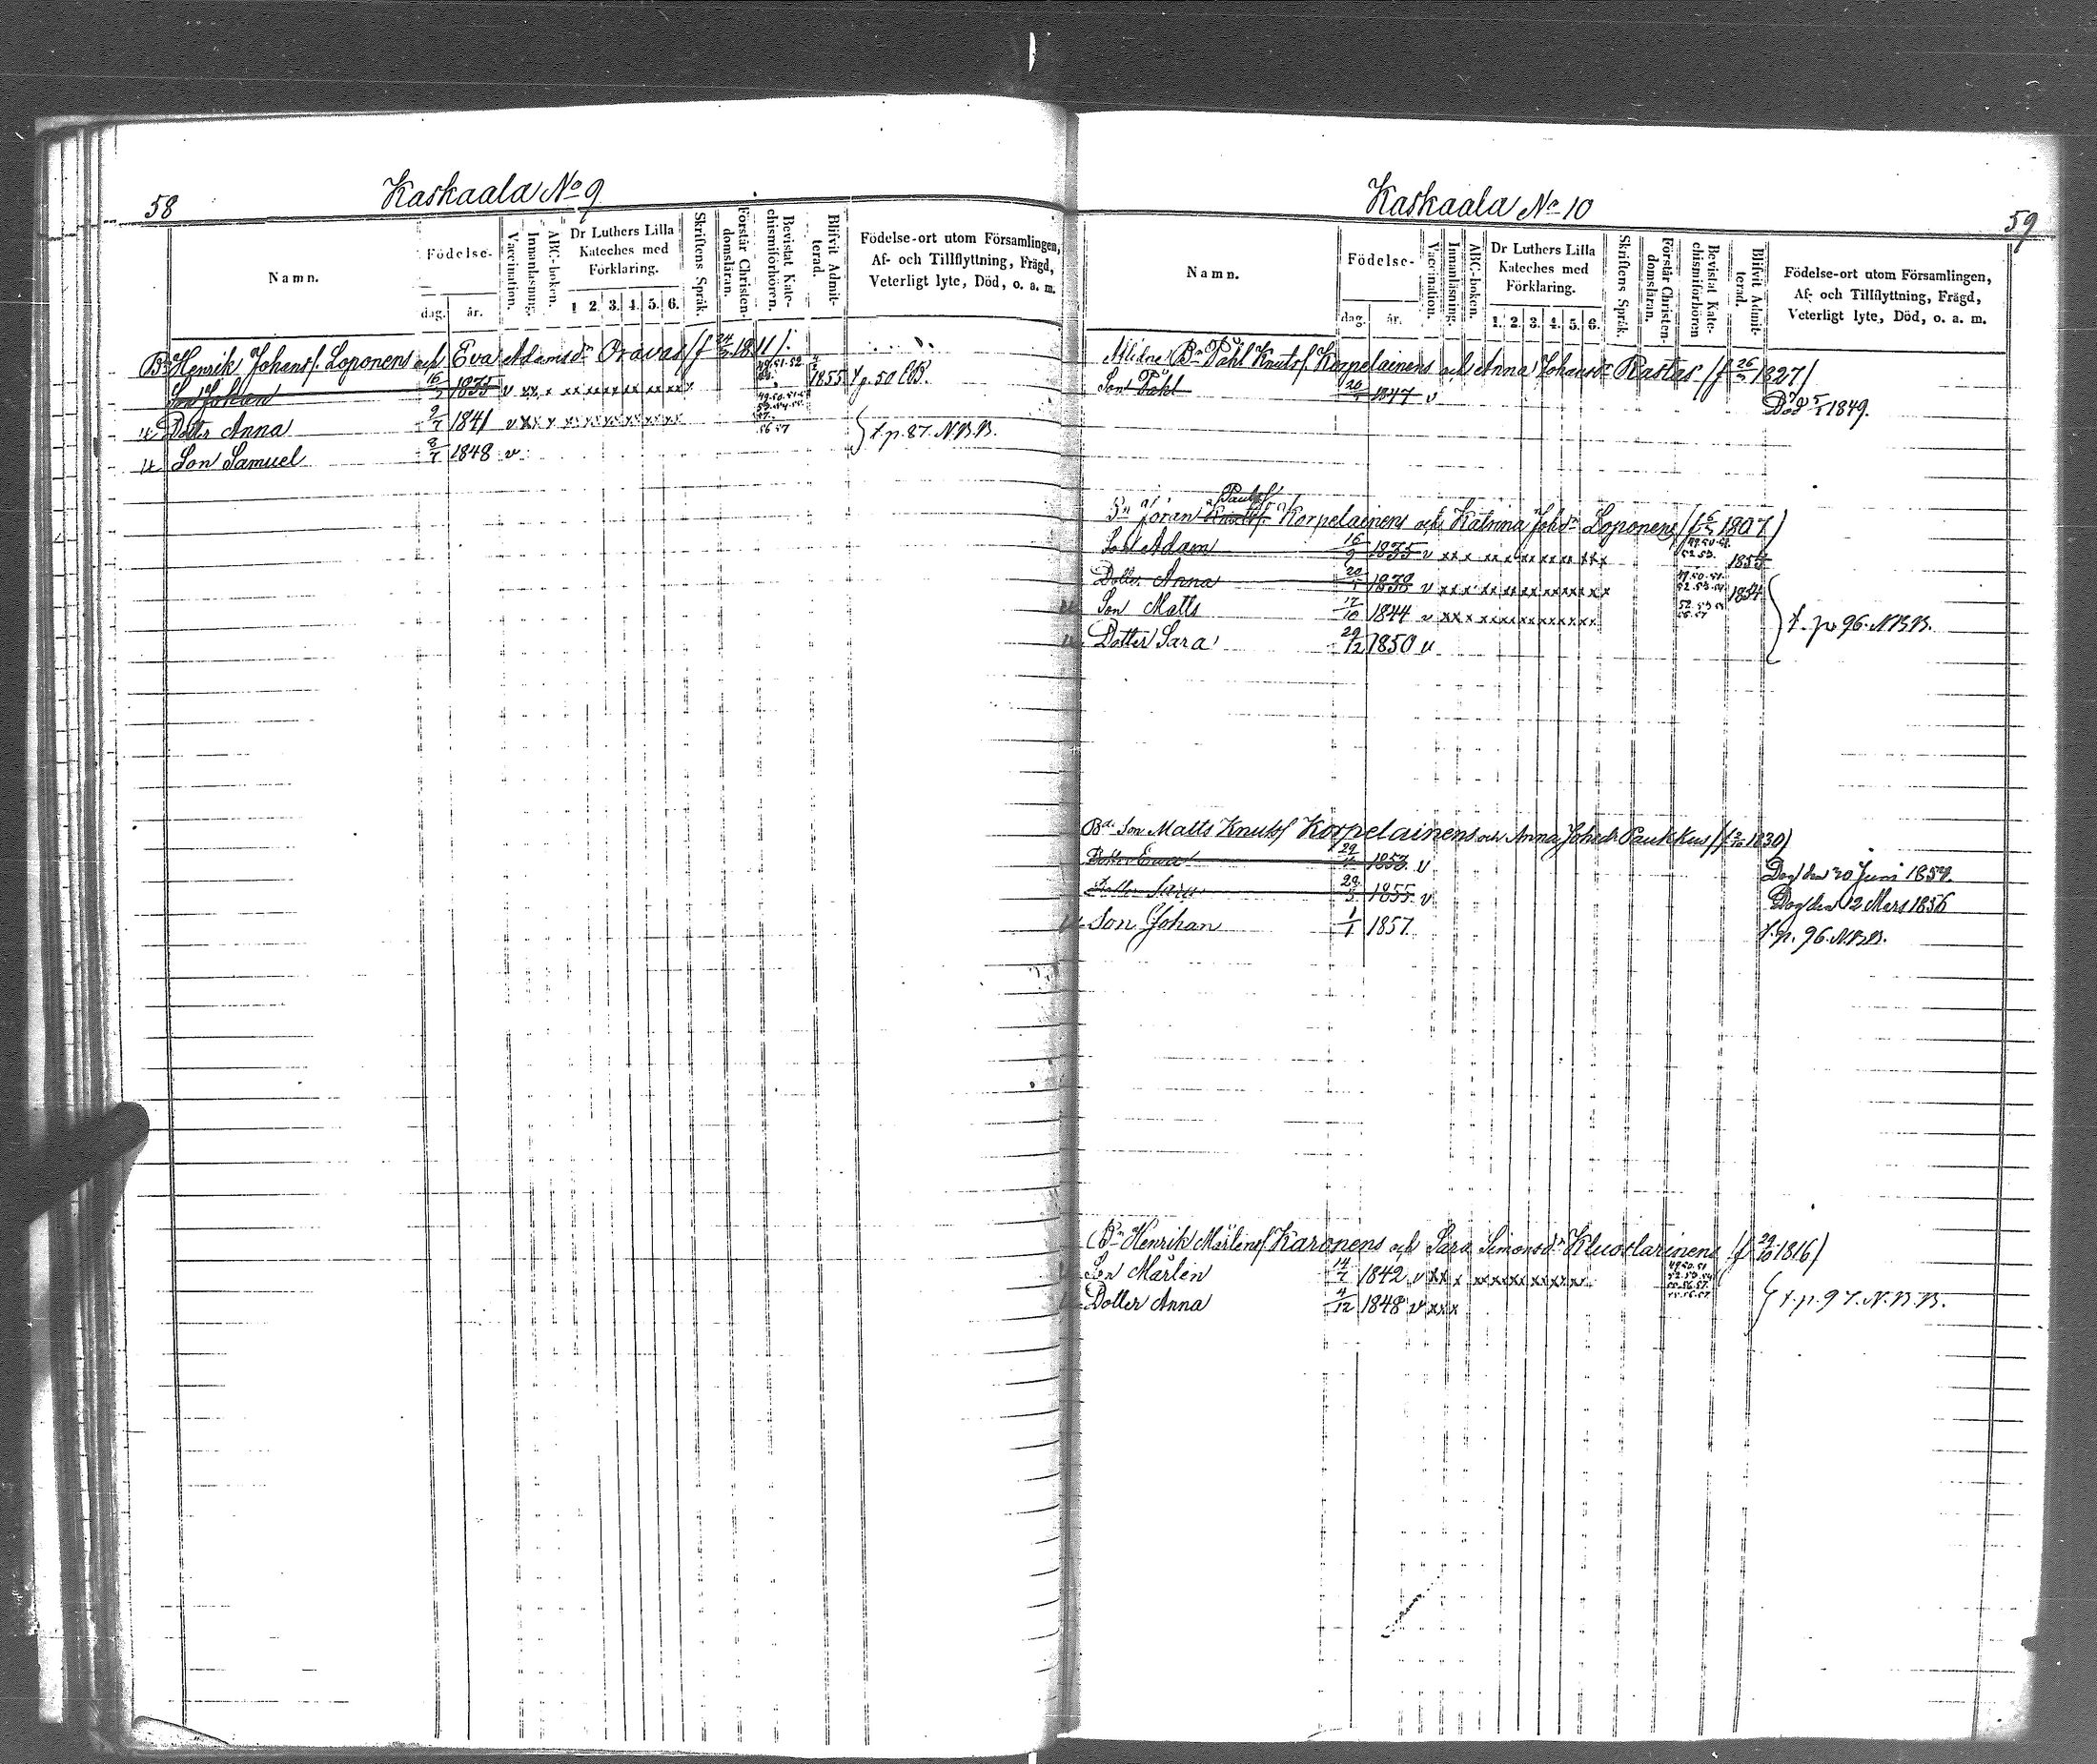 58
Kaskaala No 9
Namn.
Födelse-
dag.
år.
Vaccination.
Innanläsning.
ABC-boken.
Dr Luthers Lilla
Kateches med
Förklaring.
1 2. 3. 4. 5. 6.
Skriftens Språk.
Förstår Christen-
domsläran.
Bevistat Kate-
chismiförhören.
Blifvit Admit-
terad.
Födelse-ort utom Församlingen,
Af- och Tillflyttning, Frägd,
Veterligt lyte, Död, o. a. m.
Bn Henrik Johansf. Loponens och Eva Adamsdr Oravas (f 1811).
Son Johan 16 1835 v xx x xx xx x x x x x 1855 f p. 50
Dotter Anna 2/7 1841 v xx x x xx xx xx x x
56 57
} f. p. 87. N.B.B.
Son Samuel 8/7 1848 v
59
Kaskaala No 10
Namn.
Födelse-
dag.
år.
Vaccination.
Innanläsning.
ABC-boken.
Dr Luthers Lilla
Kateches med
Förklaring.
1. 2. 3. 4. 5. 6.
Skriftens Språk.
Förstår Christen-
domsläran.
Bevistat Kate-
chismiförhören
Blifvit Admit-
terad.
Födelse-ort utom Församlingen,
Af- och Tillflyttning, Frägd,
Veterligt lyte, Död, o. a. m.
Aflidne Bn Påhl Knutsf Korpelainens och Anna Johansdr Rastas (f 26 1827)
Son Påhl 20 1847 v
Död 5/1 1849.
Paulsf
Bn Göran Knutsf. Korpelainens och Katrina Johsdr Loponens (f 6 1807)
Son Adam 16/9 1835 v xx x xx x x xx x x x x 49.50.51. 52.53. 1853
Dotter Anna 20 1838 v xx x xx xx xx xx x x x 49.50.51. 52.53.54 1854
Son Matts 12/10 1844 v xx x xx xx xx xx x x 52.53.54
} f. p. 96. N.B.B.
Dotter Sara 29/12 1850 v
Bds Son Matts Knutsf Korpelainens och Anna Johsdr Paukkus (f 1830)
Dotter Eva 29 1853 v
Dog den 20 Juni 1859.
Dotter Sara 29/5 1855 v
Dog den 12 Mars 1856
Son Johan 1/1 1857
f. p. 96. N.B.B.
Bn Henrik Mårtensf Karonens och Sara Simonsdr (f 29/10 1816)
Son Mårten 14/7 1842 v xx x xx xx xx xx x x 49.50.51 52.53.54 55.56.57.
Dotter Anna 4/12 1848 v xx x
} f. p. 97. N.B.B.